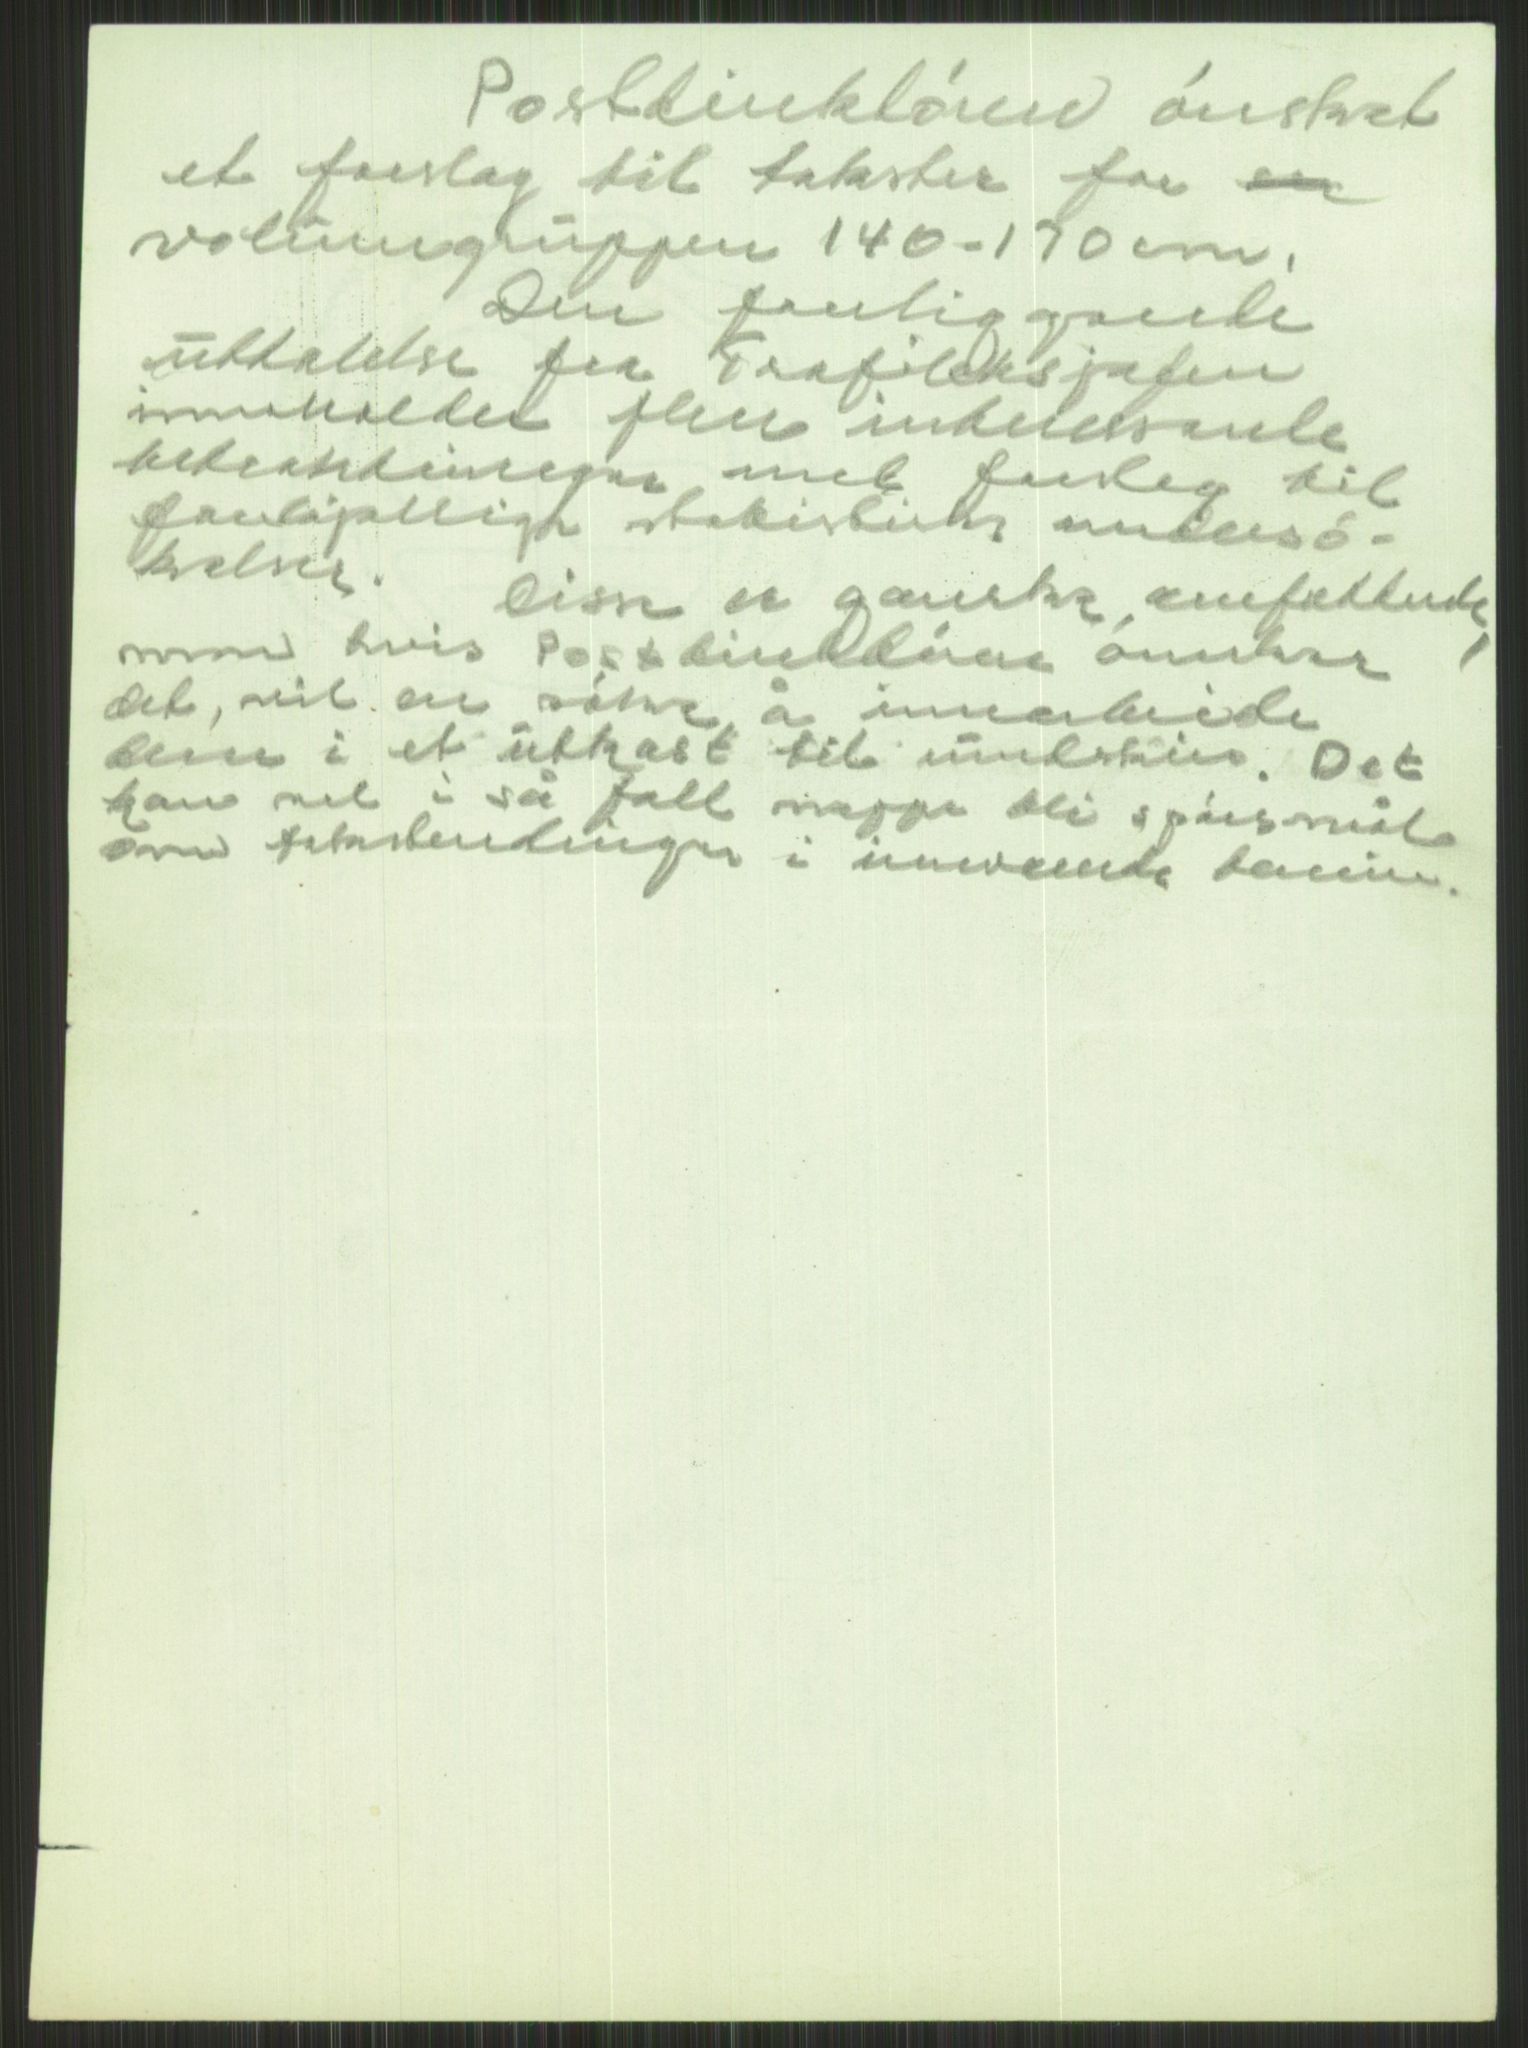 Postdirektören önsket
et forslag til takster for en
volumgruppen 140-170 cm.
Den foreliggende
uttalelse fra Trafikksjefen
inneholder flere interessante
betraktninger med forslag til
forskjellige statistiske undersö-
kelser.
Disse er ganske omfattende,
men hvis Postdirektören önsker
det, vil en söke å innarbeide
dem i et utkast til rundskriv. Det
kan vel i så fall neppe bli spörsmål
om takstendringer i inneværende termin.